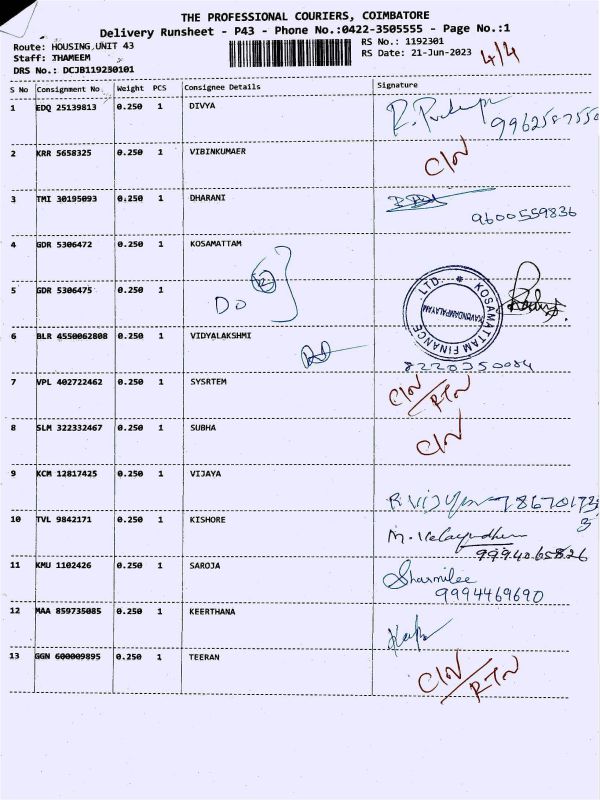 THE PROFESSIONAL COURIERS, COIMBATORE
Delivery Runsheet - P43 - Phone No.:0422-3505555 - Page No.:1
Route: HOUSING,UNIT 43
RS No.: 1192301
Staff: THAMEEM
RS Date: 21-Jun-2023
4/4
DRS No.: DCJB119230101
S No Consignment No Weight PCS Consignee Details Signature
1 EDQ 25139813 0.250 1 DIVYA
9962587550
2 KRR 5658325 0.250 1 VIBINKUMAER
C/N
3 TMI 30195093 0.250 1 DHARANI
9600559836
4 GDR 5306472 0.250 1 KOSAMATTAM
5 GDR 5306475 0.250 1
DO
KOSAMATTAM FINANCE LTD.
KAVUNDAMPALAYAM
6 BLR 4550062808 0.250 1 VIDYALAKSHMI
8220350084
7 VPL 402722462 0.250 1 SYSRTEM
C/N/RTN
8 SLM 322332467 0.250 1 SUBHA
C/N
9 KCM 12817425 0.250 1 VIJAYA
R. Vijaya
786701733
10 TVL 9842171 0.250 1 KISHORE
M. Velayudham
9994065826
11 KMU 1102426 0.250 1 SAROJA
Sharmilee
9994469690
12 MAA 859735085 0.250 1 KEERTHANA
13 GGN 600009895 0.250 1 TEERAN
C/N/RTN